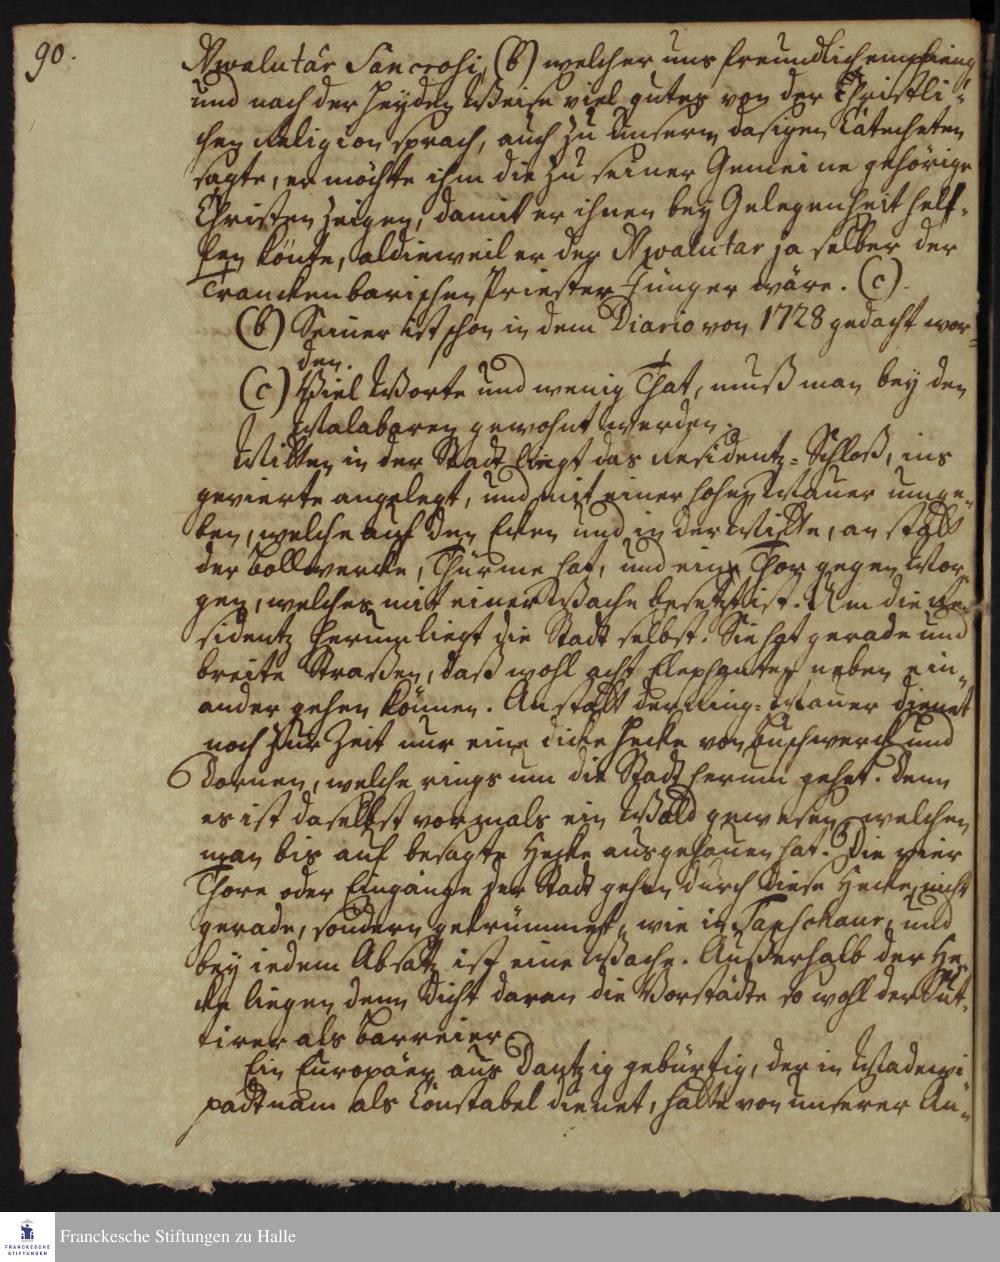 90.
Awalutár Sancrosi, (b) welcher uns freundlich empfieng
und nach der Heyden Weise viel gutes von der Christli-
chen Religion sprach, auch zu unserm dasigen Catecheten
sagte, er möchte ihm die zu seiner Gemeine gehörige
Christen zeigen, damit er ihnen bey Gelegenheit helf-
fen könte, aldieweil er der Awalutar ja selber der
Tranckenbarischen Priester Jünger wäre. (c).
(b) Seiner ist schon in dem Diario von 1728 gedacht wor-
den.
(c) Viel Worte und wenig That, muß man bey den
Malabaren gewohnt werden.
Mitten in der Stadt liegt das Residentz-Schloß, ins
gevierte angelegt, und mit einer hohen Mauer umge-
ben, welche auf den Ecken und in der Mitte, an statt
der Bollwercke, Thürme hat, und ein Thor gegen Mor-
gen, welches mit einer Wache besetzt ist. Um die Re-
sidentz herum liegt die Stadt selbst. Sie hat gerade und
breite Straßen, daß wohl acht Elephanten neben ein-
ander gehen können. Anstatt der Ring-Mauer dienet
noch zur Zeit nur eine dicke Hecke von Buschwerck und
Dornen, welche rings um die Stadt herum gehet. Denn
es ist daselbst vormals ein Wald gewesen, welchen
man bis auf besagte Hecke ausgehauen hat. Die vier
Thore oder Eingänge der Stadt gehen durch diese Hecke nicht
gerade, sondern gekrümmet, wie in Tanschaur, und
bey iedem Absatz ist eine Wache. Außerhalb der He-
cke liegen denn dicht daran die Vorstädte so wohl der Sut-
tirer als Barreier.
Ein Europäer aus Dantzig gebürtig, der in Madewi
padtnam als Constabel dienet, hatte von unserer An-
Franckesche Stiftungen zu Halle
FRANCKESCHE
STIFTUNGEN